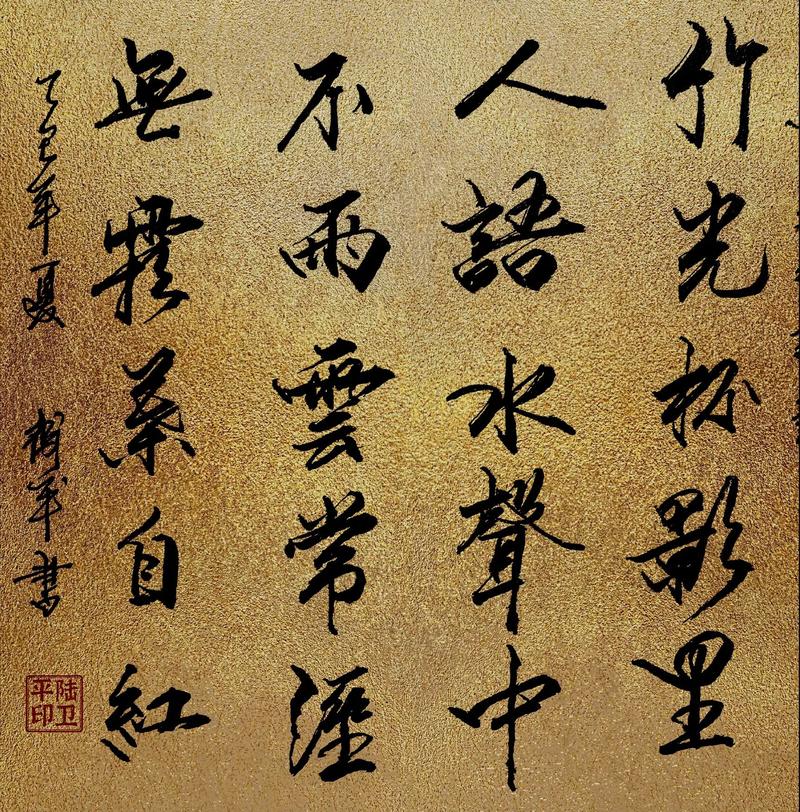 竹光杯影里
人語水聲中
不雨雲常溼
無霜葉自紅
乙巳年夏 書
陆卫平印